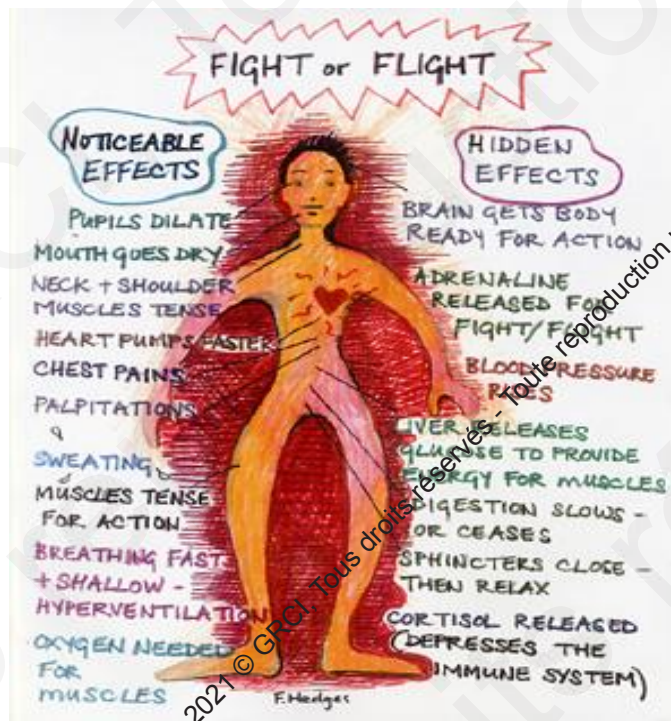 FIGHT or FLIGHT
NOTICEABLE
EFFECTS
PUPILS DILATE
MOUTH GOES DRY
NECK + SHOULDER
MUSCLES TENSE
HEART PUMPS FASTER
CHEST PAINS
PALPITATIONS
&
SWEATING
MUSCLES TENSE
FOR ACTION
BREATHING FAST
+ SHALLOW -
HYPERVENTILATION
OXYGEN NEEDED
FOR
MUSCLES
HIDDEN
EFFECTS
BRAIN GETS BODY
READY FOR ACTION
ADRENALINE
RELEASED FOR
FIGHT/FLIGHT
BLOOD PRESSURE
RISES
LIVER RELEASES
GLUCOSE TO PROVIDE
ENERGY FOR MUSCLES
DIGESTION SLOWS -
OR CEASES
SPHINCTERS CLOSE -
THEN RELAX
CORTISOL RELEASED
(DEPRESSES THE
IMMUNE SYSTEM)
F. Hedges
2021 © GRCI, Tous droits réservés - Toute reproduction